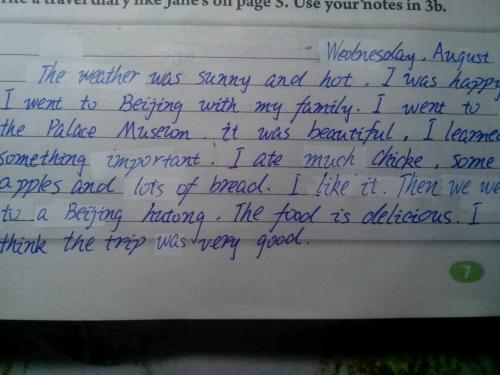 ite a travel diary like Jane's on page 5. Use your notes in 3b.
Wednesday, August
The weather was sunny and hot. I was happy
I went to Beijing with my family. I went to
the Palace Museum. it was beautiful. I learned
something important. I ate much chicke, some
apples and lots of bread. I like it. Then we we
to a Beijing hutong. The food is delicious. I
think the trip was very good.
7